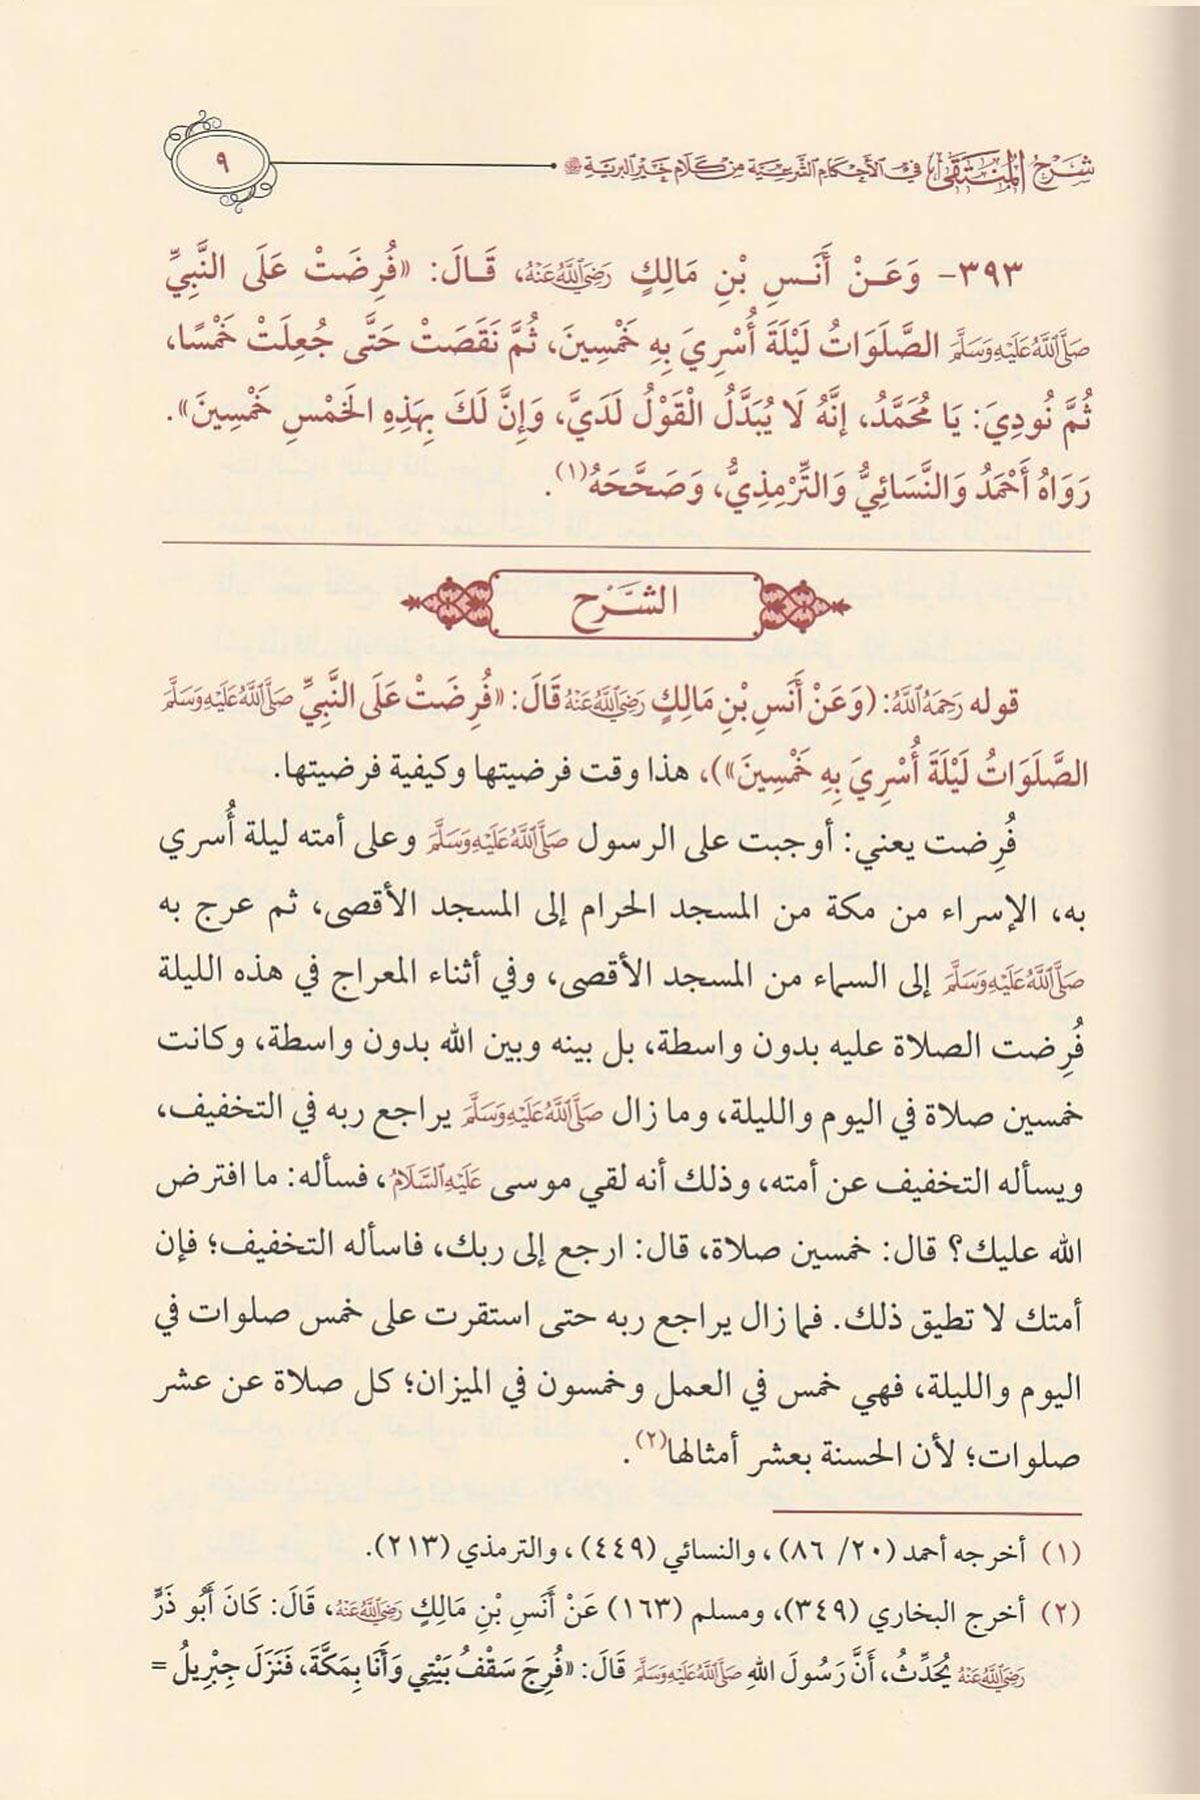 شرح المنتقى في الأحكام الشرعية من كلام خير البرية ﷺ
٩
٣٩٣- وَعَنْ أَنَسِ بْنِ مَالِكٍ رَضِيَ اللَّهُ عَنْهُ، قَالَ: «فُرِضَتْ عَلَى النَّبِيِّ
صَلَّى اللَّهُ عَلَيْهِ وَسَلَّمَ الصَّلَوَاتُ لَيْلَةَ أُسْرِيَ بِهِ خَمْسِينَ، ثُمَّ نَقَصَتْ حَتَّى جُعِلَتْ خَمْسًا،
ثُمَّ نُودِيَ: يَا مُحَمَّدُ، إِنَّهُ لَا يُبَدَّلُ الْقَوْلُ لَدَيَّ، وَإِنَّ لَكَ بِهَذِهِ الْخَمْسِ خَمْسِينَ».
رَوَاهُ أَحْمَدُ وَالنَّسَائِيُّ وَالتِّرْمِذِيُّ، وَصَحَّحَهُ(١).
الشَّرْح
قوله رَحِمَهُ اللَّهُ: (وَعَنْ أَنَسِ بْنِ مَالِكٍ رَضِيَ اللَّهُ عَنْهُ قَالَ: «فُرِضَتْ عَلَى النَّبِيِّ صَلَّى اللَّهُ عَلَيْهِ وَسَلَّمَ
الصَّلَوَاتُ لَيْلَةَ أُسْرِيَ بِهِ خَمْسِينَ»)، هذا وقت فرضيتها وكيفية فرضيتها.
فُرِضت يعني: أوجبت على الرسول صَلَّى اللَّهُ عَلَيْهِ وَسَلَّمَ وعلى أمته ليلة أُسري
به، الإسراء من مكة من المسجد الحرام إلى المسجد الأقصى، ثم عرج به
صَلَّى اللَّهُ عَلَيْهِ وَسَلَّمَ إلى السماء من المسجد الأقصى، وفي أثناء المعراج في هذه الليلة
فُرِضت الصلاة عليه بدون واسطة، بل بينه وبين الله بدون واسطة، وكانت
خمسين صلاة في اليوم والليلة، وما زال صَلَّى اللَّهُ عَلَيْهِ وَسَلَّمَ يراجع ربه في التخفيف،
ويسأله التخفيف عن أمته، وذلك أنه لقي موسى عَلَيْهِ السَّلَامُ، فسأله: ما افترض
الله عليك؟ قال: خمسين صلاة، قال: ارجع إلى ربك، فاسأله التخفيف؛ فإن
أمتك لا تطيق ذلك. فما زال يراجع ربه حتى استقرت على خمس صلوات في
اليوم والليلة، فهي خمس في العمل وخمسون في الميزان؛ كل صلاة عن عشر
صلوات؛ لأن الحسنة بعشر أمثالها(٢).
(١) أخرجه أحمد (٢٠/ ٨٦)، والنسائي (٤٤٩)، والترمذي (٢١٣).
(٢) أخرج البخاري (٣٤٩)، ومسلم (١٦٣) عَنْ أَنَسِ بْنِ مَالِكٍ رَضِيَ اللَّهُ عَنْهُ، قَالَ: كَانَ أَبُو ذَرٍّ
رَضِيَ اللَّهُ عَنْهُ يُحَدِّثُ، أَنَّ رَسُولَ اللهِ صَلَّى اللَّهُ عَلَيْهِ وَسَلَّمَ قَالَ: «فُرِجَ سَقْفُ بَيْتِي وَأَنَا بِمَكَّةَ، فَنَزَلَ جِبْرِيلُ =